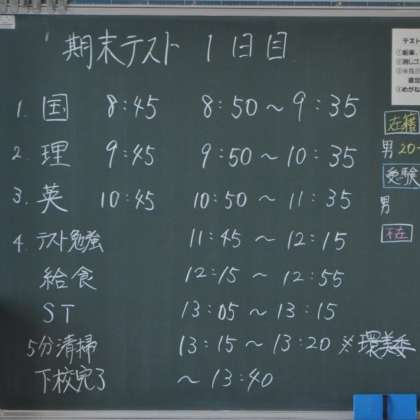 期末テスト 1日目
1. 国 8:45 8:50～9:35
2. 理 9:45 9:50～10:35
3. 英 10:45 10:50～11:35
4. テスト勉強 11:45～12:15
給食 12:15～12:55
ST 13:05～13:15
5分清掃 13:15～13:20 ※環美委
下校完了 ～13:40
テスト
在籍
男 20
受験
男
不在